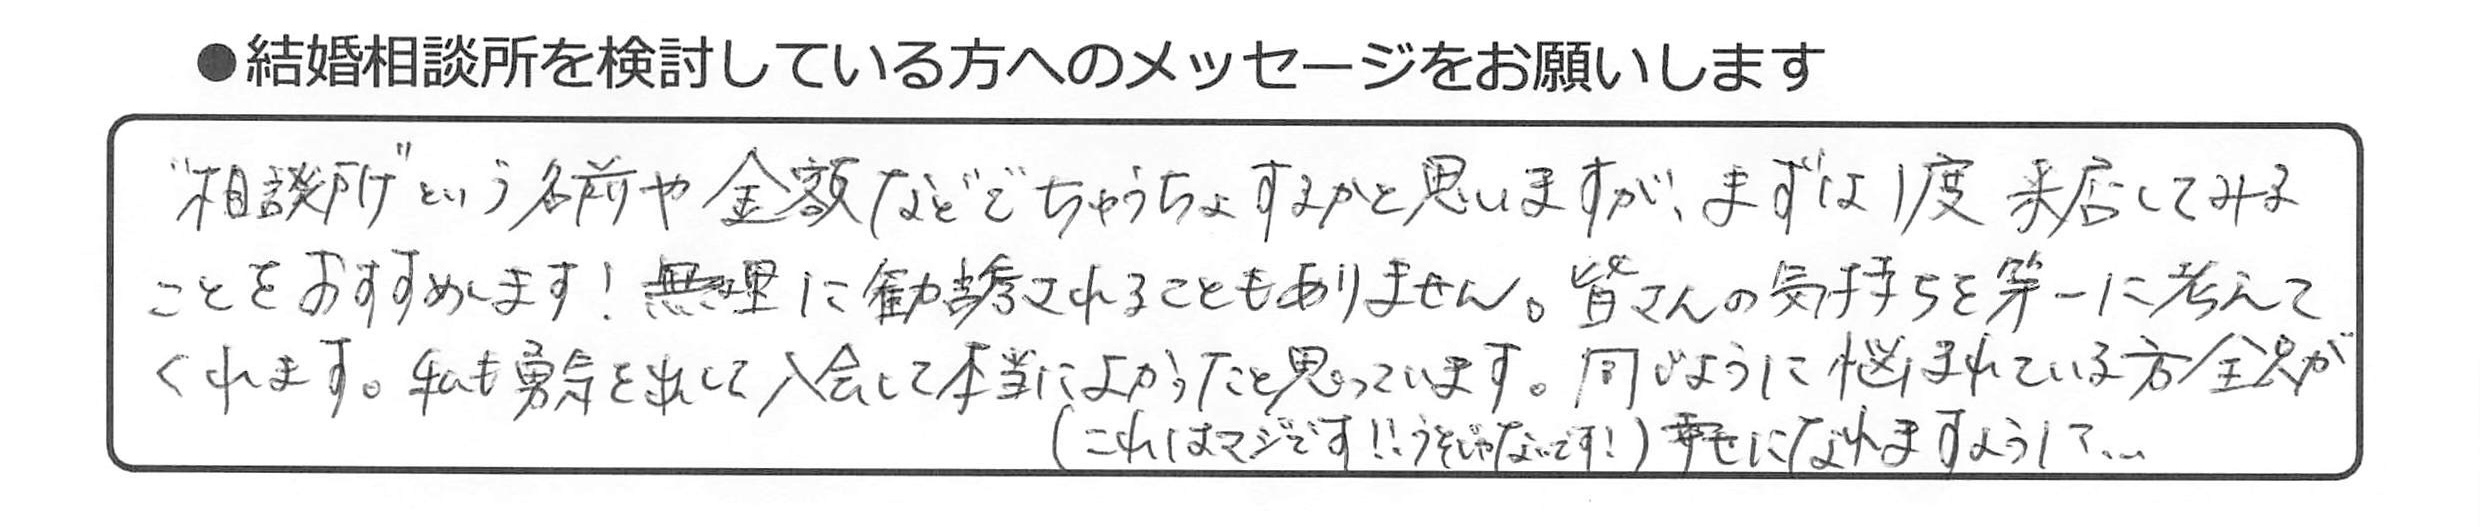 ●結婚相談所を検討している方へのメッセージをお願いします
"相談所"という名前や金額などでちゅうちょするかと思いますが、まずは1度来店してみる
ことをおすすめします！無理に勧誘されることもありません。皆さんの気持ちを第一に考えて
くれます。私も勇気を出して入会して本当によかったと思っています。同じように悩まれている方全員が
(これはマジです!!うそじゃないです!)幸せになれますように…